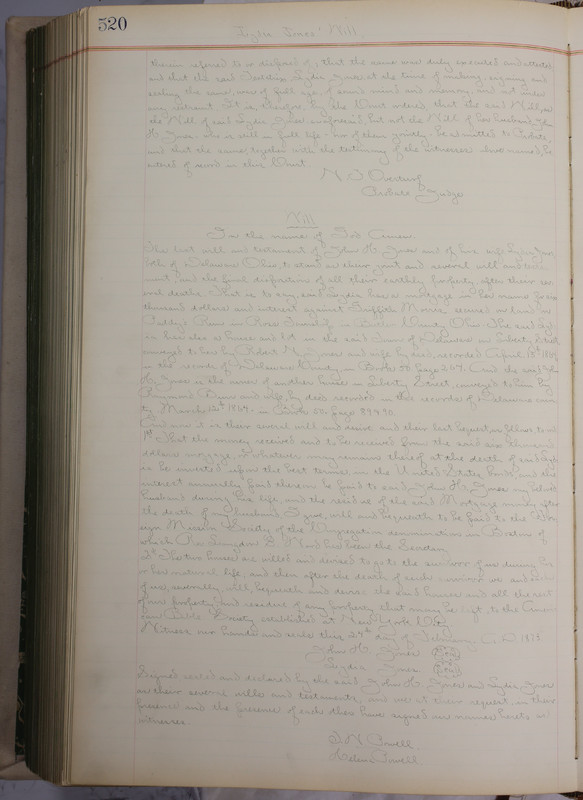 520
Lydia Jones' Will.
therein referred to or disposed of, that the same was duly executed and attested
and that the said Testatrix Lydia Jones at the time of making, signing and
sealing the same, was of full age of sound mind and memory, and not under
any restraint. It is, therefore, by the Court ordered that the said Will, as
the Will of said Lydia Jones aforesaid, but not the Will of her husband John
H. Jones who is still in full life - nor of them jointly - be admitted to Probate
and that the same, together with the testimony of the witnesses above named, be
entered of record in this Court.
Probate Judge
Will
In the name of God Amen.
The last will and testament of John H. Jones and of his wife Lydia Jones
both of Delaware Ohio, to stand as their joint and several will and
and the final dispositions of all their earthly property after their
deaths. That is to say, said Lydia has a mortgage in her name for six
thousand dollars and interest against Griffith Morris secured on land on
Paddy's Run in Ross Township in Butler County Ohio. The said
has also a house and lot in the said Town of Delaware on Liberty Street
conveyed to her by Robert Jones and wife by deed, recorded April 18th
in the records of Delaware County in Book Page 207. And the said John
H. Jones is the owner of another house in Liberty Street, conveyed to him by
and wife, by deed recorded in the records of Delaware
March 1869 in Book 58. page 89 & 90.
And now it is their several will and desire and their last bequest as follows, to wit
1st That the money received and to be received from the said six thousand
dollars mortgage, or whatever may remain thereof at the death of said Lydia
be invested upon the best terms in the United States bonds, and the
interest annually paid therein be paid to said John H. Jones my beloved
husband during his life, and the residue of the said Mortgage money after
the death of my husband I give, will and bequeath to be paid to the
Mission Society of the Congregation denomination in Boston of
which Rev. Langdon S. Ward has been the Secretary.
2d The two houses are willed and devised to go to the survivor of us during his
or her natural life, and then after the death of such survivor we and each
of us, severally, will bequeath and devise the said houses and all the rest
of our property and residue of any property that may be left, to the
Bible Society established at New York City
Witness our hands and seals this 24th day of February A.D. 1874
John H. Jones (Seal)
Lydia Jones (Seal)
Signed sealed and declared by the said John H. Jones and Lydia Jones
as their several wills and testaments, and we at their request, in their
presence and the presence of each other have signed our names hereto as
witnesses.